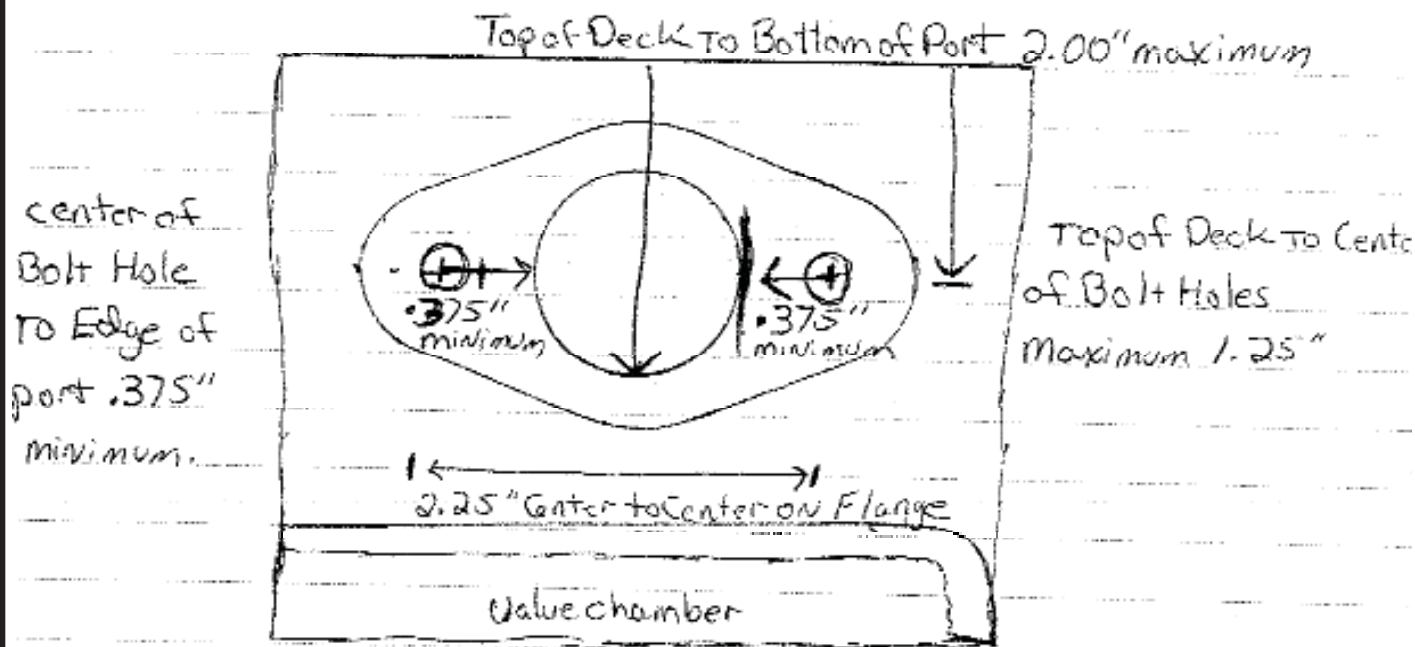 Top of Deck To Bottom of Port 2.00" maximum
center of
Bolt Hole
To Edge of
port .375"
minimum.
.375"
minimum
.375"
minimum
Top of Deck To Cente
of Bolt Holes
Maximum 1.25"
2.25" Center to Center on Flange
Valve chamber